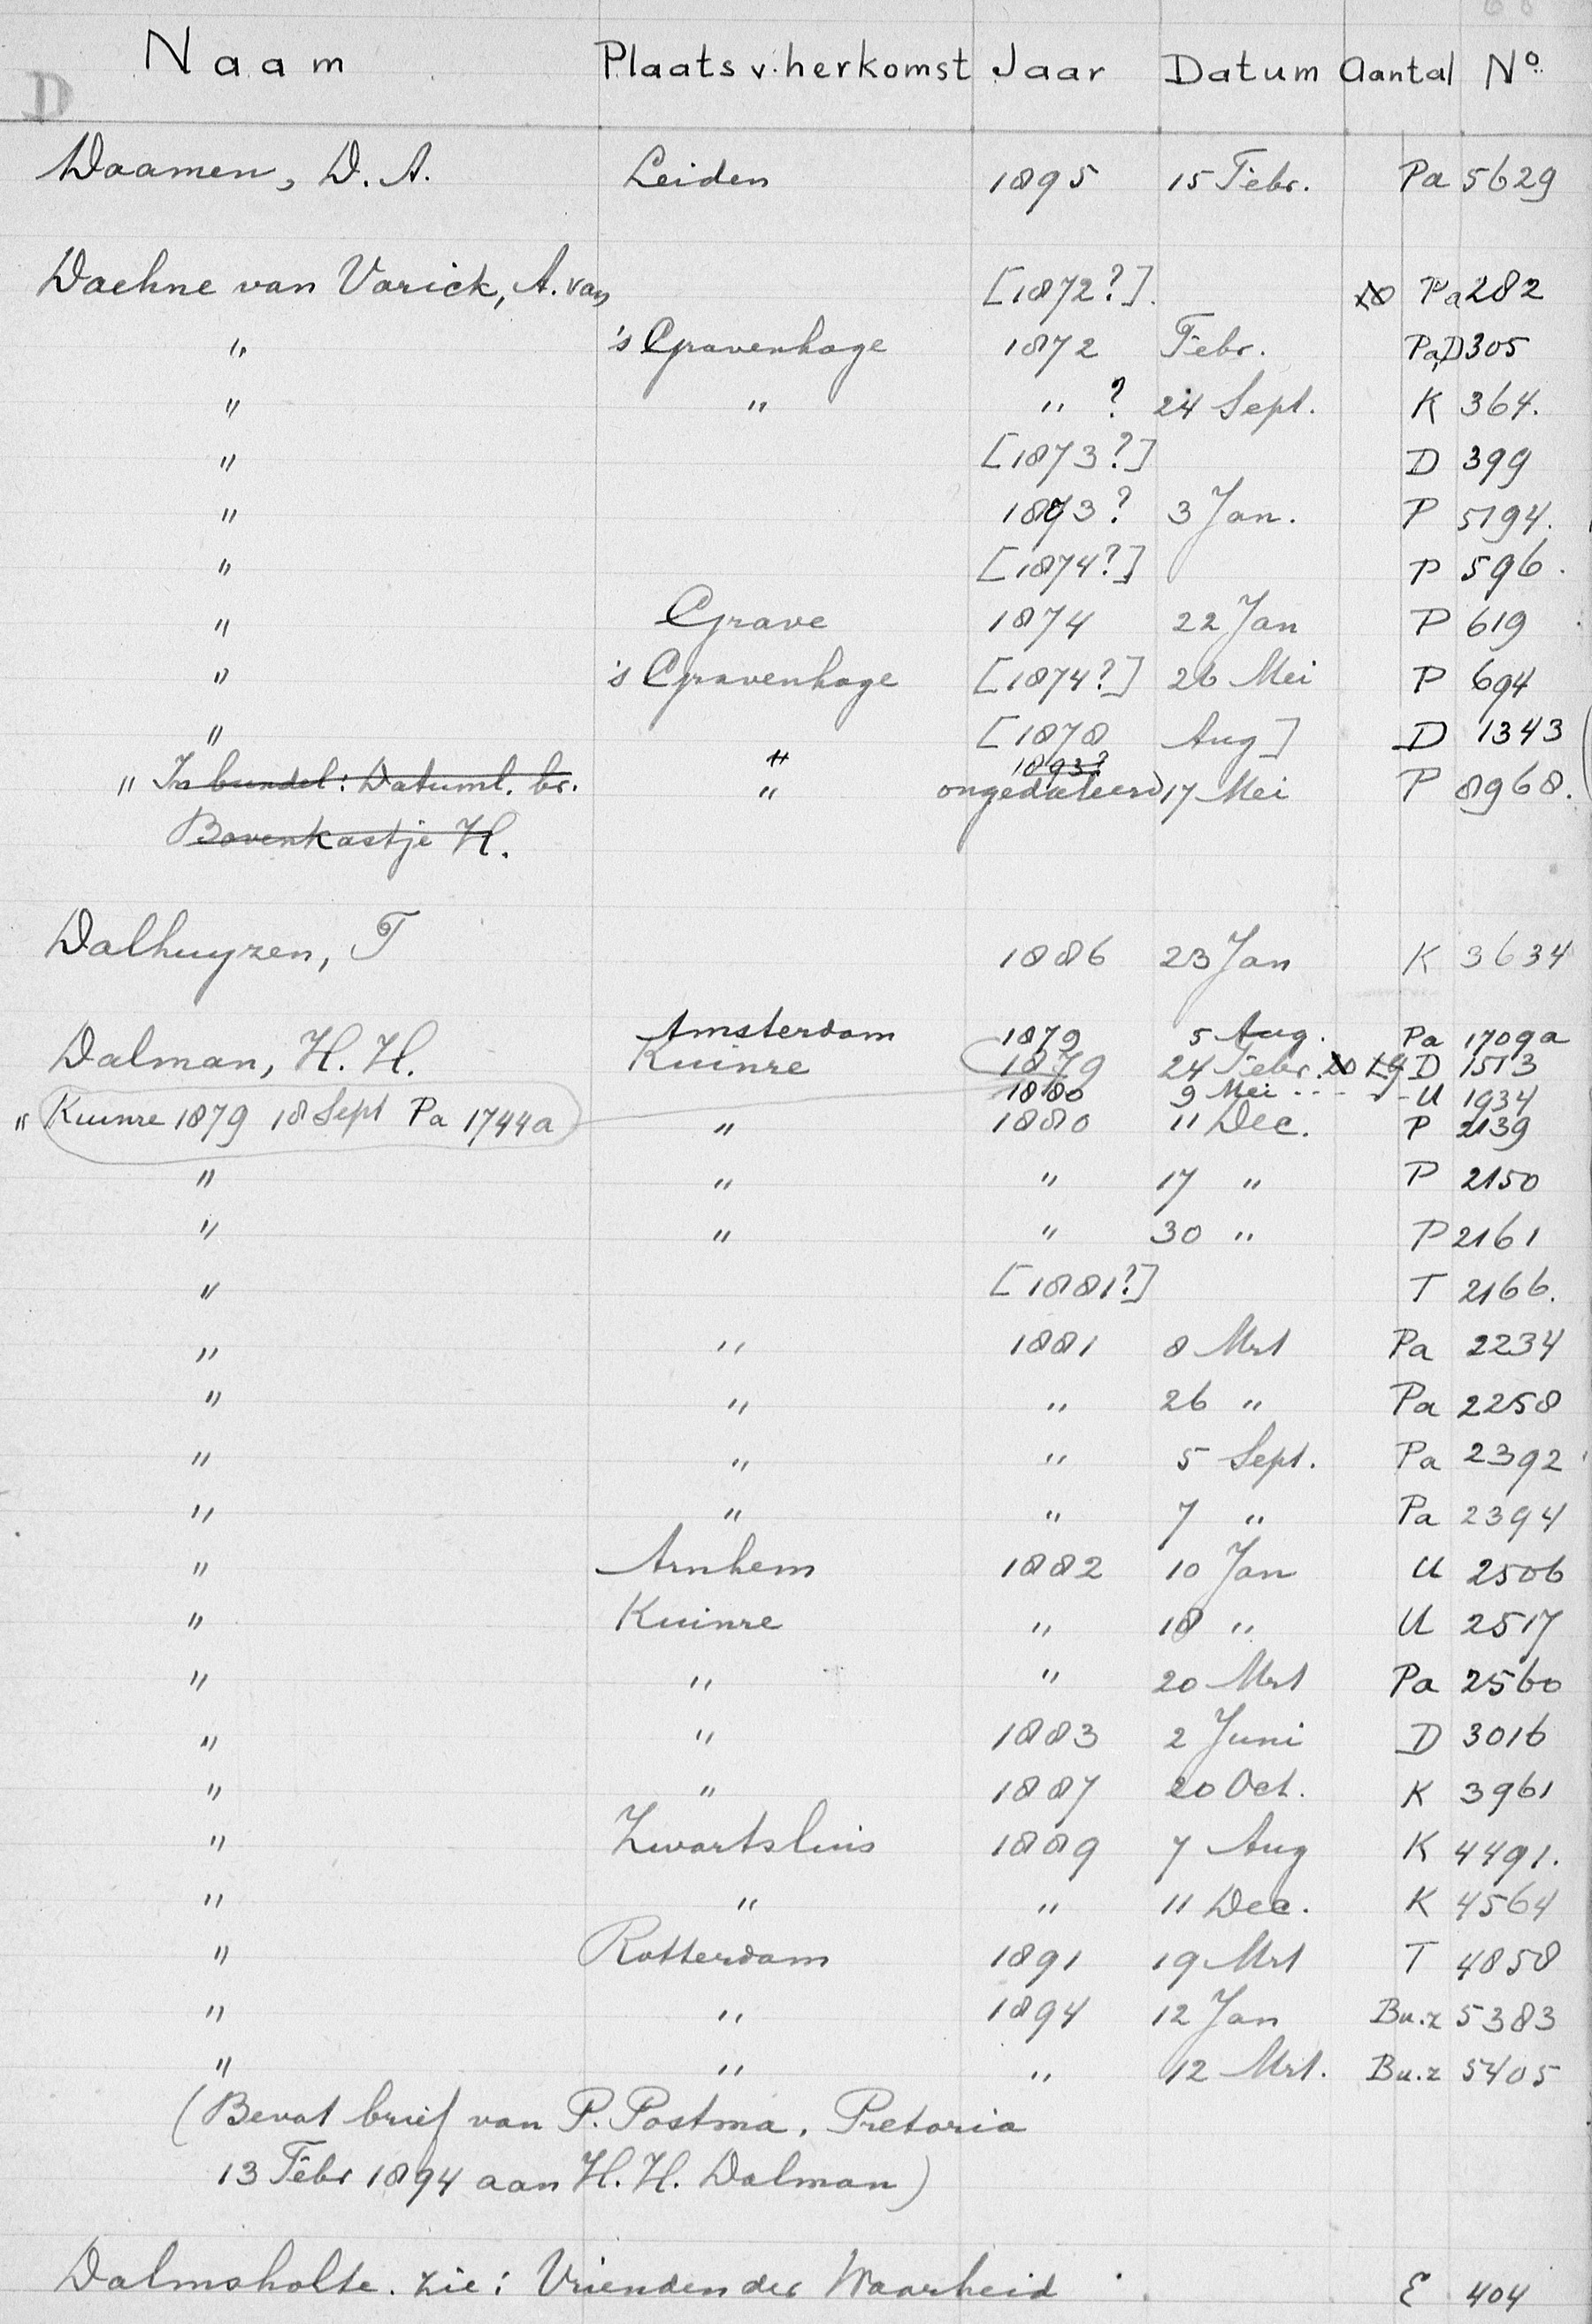 Naam Plaats v. herkomst Jaar Datum Aantal No.
D
Daamen, D. A. Leiden 1895 15 Febr. Pa 5629
Daehne van Varick, A. van [1872?]. Pa 282
" 's Gravenhage 1872 Febr. Pa,D 305
" " " ? 24 Sept. K 364.
" [1873?] D 399
" 1873? 3 Jan. P 5194.
" [1874?] P 596.
" Grave 1874 22 Jan P 619
" 's Gravenhage [1874?] 26 Mei P 694
" " [1878 Aug] D 1343
1893?
" In bundel: Datuml. br. " ongedateerd 17 Mei P 8968.
Bovenkastje H.
Dalhuyzen, T 1886 23 Jan K 3634
Amsterdam 1879 5 Aug. Pa 1709a
Dalman, H. H. Kuinre 1879 24 Febr. D 1513
1880 9 Mei - - - - U 1934
" Kuinre 1879 18 Sept Pa 1744a " 1880 11 Dec. P 2139
" " " 17 " P 2150
" " " 30 " P 2161
" [1881?] T 2166.
" " 1881 8 Mrt Pa 2234
" " " 26 " Pa 2258
" " " 5 Sept. Pa 2392
" " " 7 " Pa 2394
" Arnhem 1882 10 Jan U 2506
" Kuinre " 18 " U 2517
" " " 20 Mrt Pa 2560
" " 1883 2 Juni D 3016
" " 1887 20 Oct. K 3961
" Zwartsluis 1889 7 Aug K 4491.
" " " 11 Dec. K 4564
" Rotterdam 1891 19 Mrt T 4858
" " 1894 12 Jan Bu.z 5383
" " " 12 Mrt. Bu.z 5405
(Bevat brief van P. Postma, Pretoria
13 Febr 1894 aan H. H. Dalman)
Dalmsholte. zie: Vrienden der Waarheid E 404